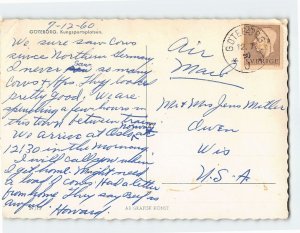 7-12-60
GÖTEBORG. Kungsportsplatsen.
We sure saw cows
since Northern Germany
I never saw so many
cows & they looked
pretty good, We are
spending a few hours in
this town between trains
We arrive at Oslo Norway
12:30 in the morning
I will call you when
I get home. Might need
a load of cows. Had a letter
from home. They say beef is
awful. Howard.
Air
Mail
GÖTEBORG
SVERIGE
Mr & Mrs Jens Miller
Owen
Wis
U.S.A
A/B GRAFISK KONST